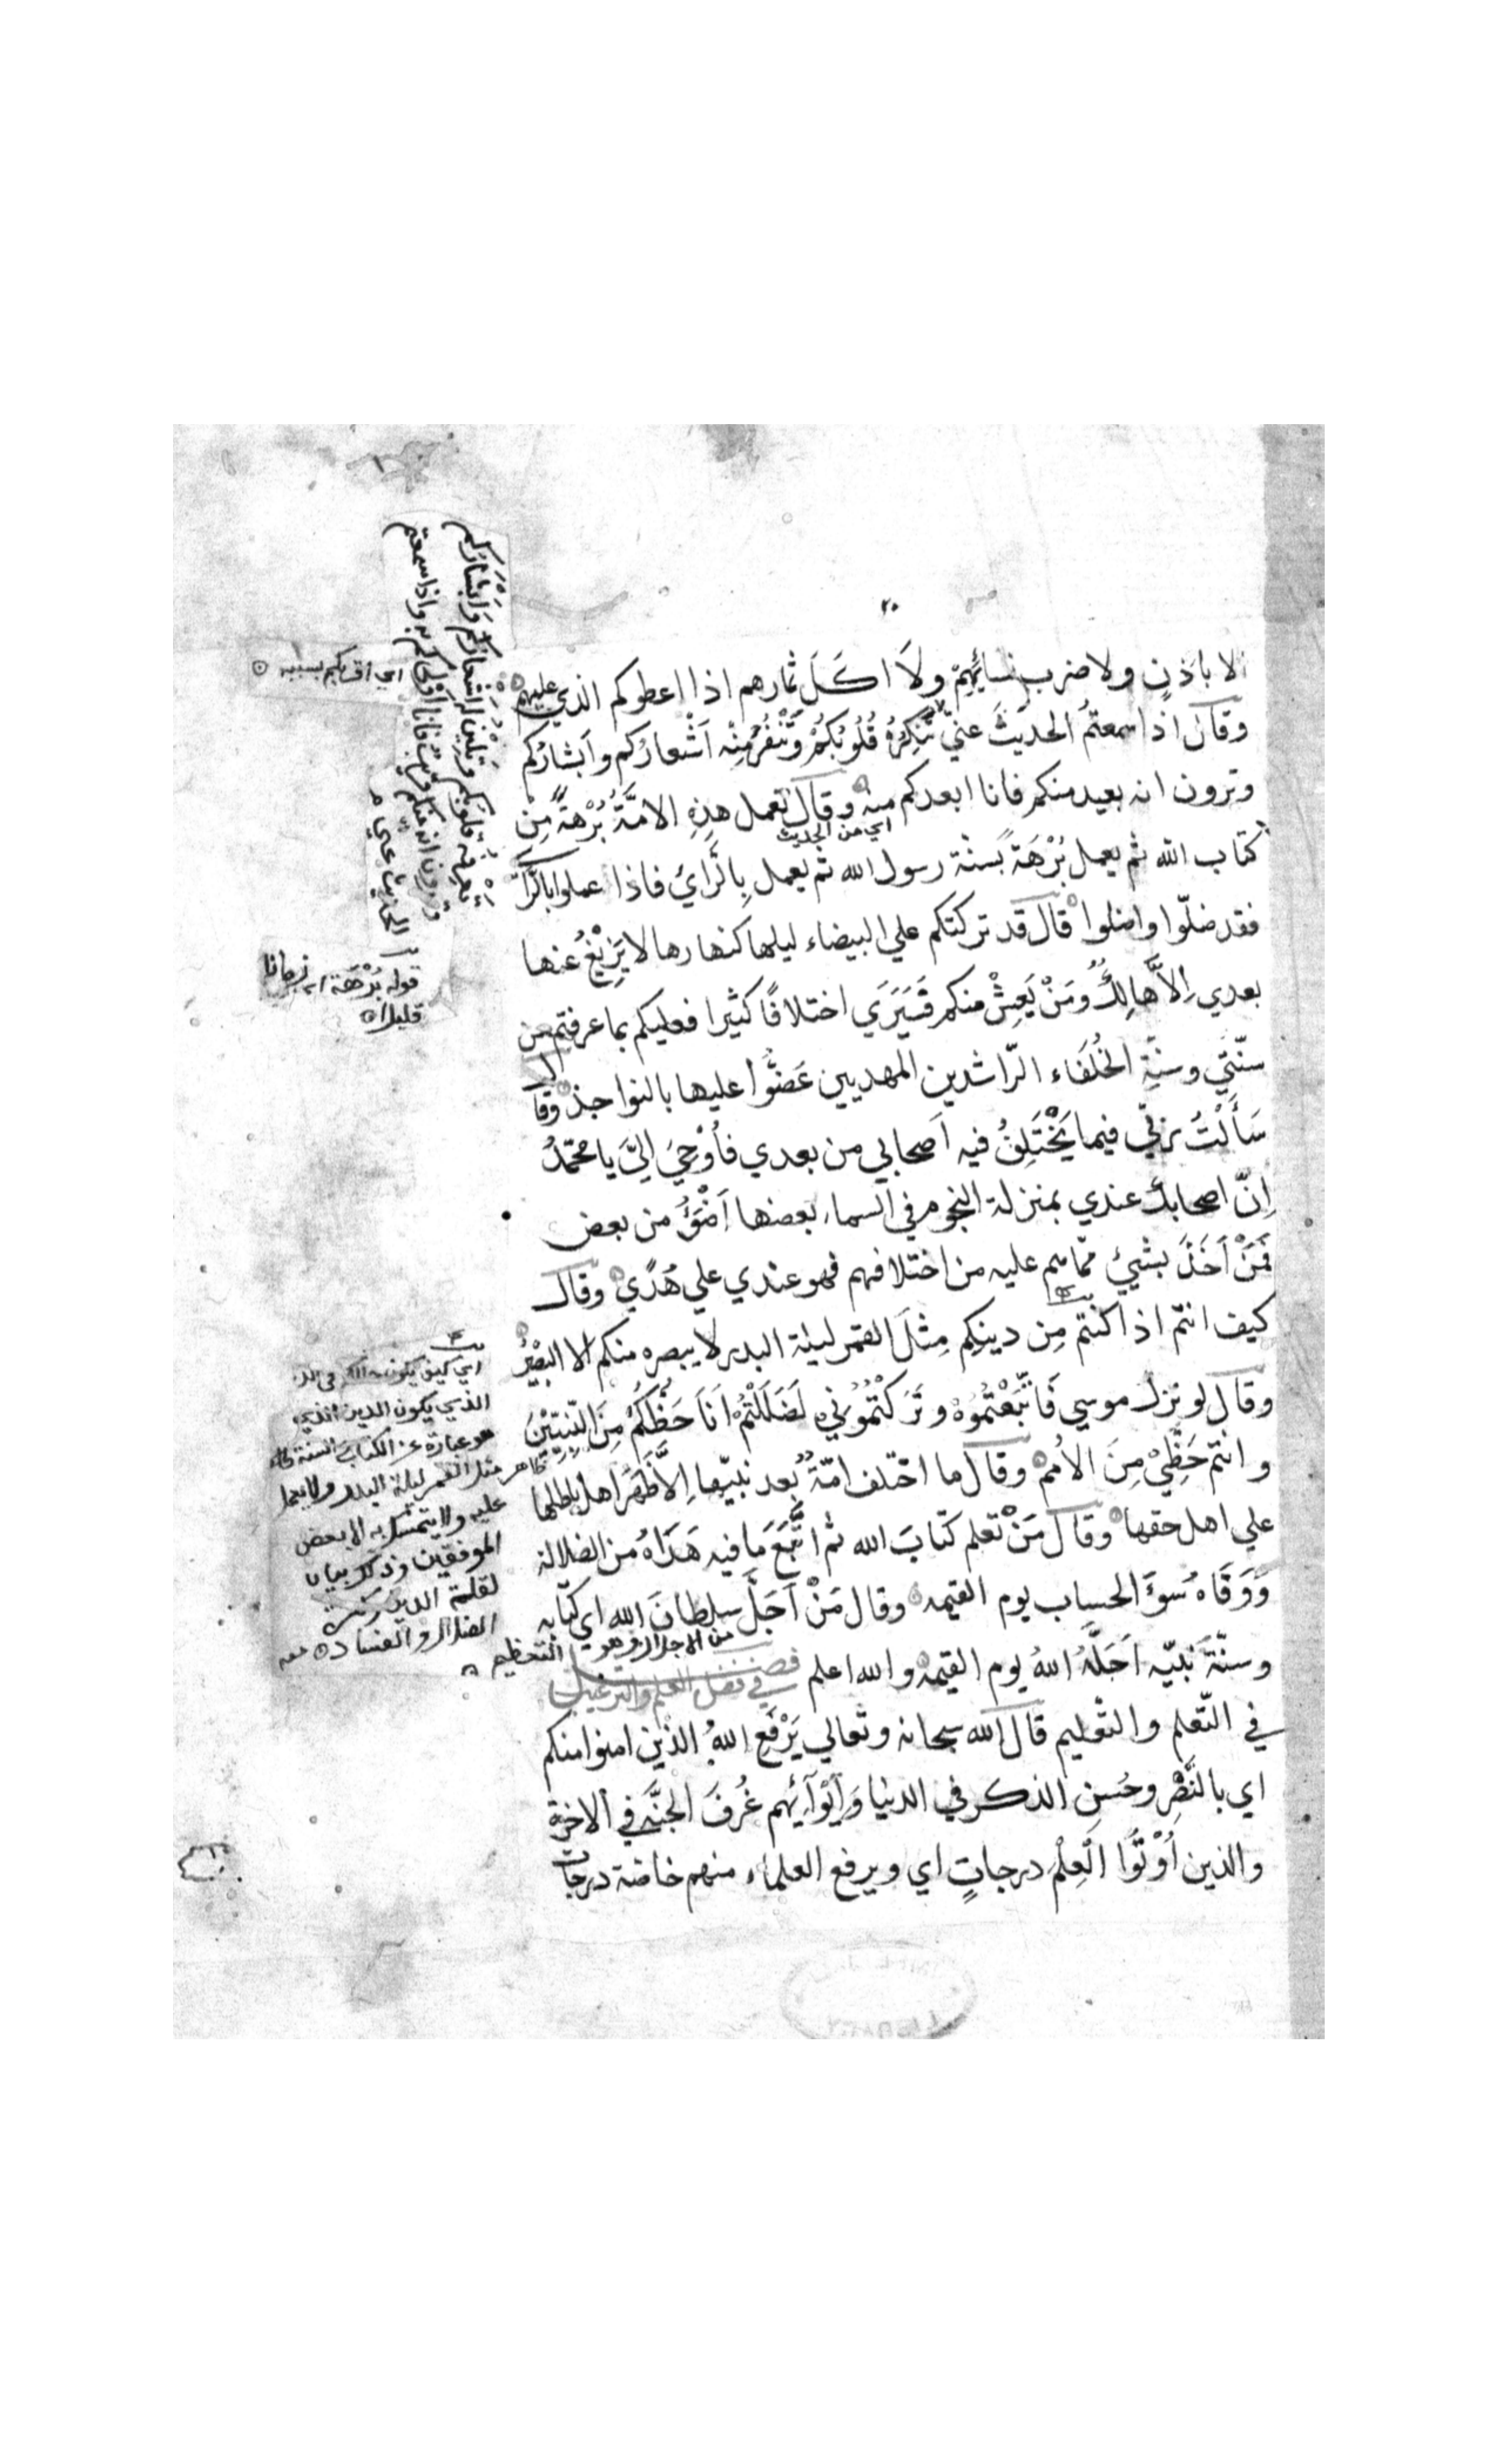 ٢٠
الا باذنٍ ولا ضرب نسائهم ولَا اكلَ ثمارهم اذا اعطوكم الذي عليهم
وقال اذا سمعتمُ الحديثَ عنيّ تُنكِرُهُ قُلُوبُكُمْ وَتَنْفُرُ مِنْه اَشْعارُكم واَبشارُكم
وترون انه بعيد منكم فانا ابعدكم منه وقال تعمل هذِهِ الامّةُ بُرْهةً مِنْ
اي من الحديث
كتاب الله ثم يعمل بُرْهَةً بسنة رسول الله ثم يعمل بِالرَّايِ فاذا عملوا بالرَّاي
فقد ضلّوا واضلوا قال قد تركتكم علي البيضاء ليلها كنهارها لا يَزِيْغُ عنها
بعدي اِلاَّ هالِكٌ وَمَنْ يَعِشْ منكم فَسَيَرَي اختلافًا كثيرا فعليكم بما عرفتم من
سنّتي وسنّةِ الخُلَفَاء الرّاشدين المهديين عَضُّوا عليها بالنواجذ وقال
سَأَلْتُ ربّي فيما يَخْتَلِفُ فيه اَصحابي من بعدي فأُوْحِيَ اِليَّ يا محمّدُ
اِنّ اصحابك عندي بمنزلة النجوم في السماء بعضها اَضْوَءُ من بعض
فَمَنْ اَخَذَ بشيئ ممّا هم عليه من اختلافهم فهو عندي علي هُدًي وقال
كيف انتم اذا كنتم مِن دينِكم مِثلَ القمر ليلة البدر لا يبصره منكم الا البَصِيْرُ
وقال لو نزل موسي فَاتَّبَعْتُمُوْهُ وتَرَكْتُمُوْنِي لَضَلَلْتُمْ اَنَا حَظُّكُمْ مِنَ النَّبِيّيْنَ
وانتم حَظِّيْ مِنَ الاُمم وقال ما اختلف امّةٌ بعد نبيّها اِلاَّ ظَهَرَ اهل باطلها
علي اهل حقها وقال مَنْ تعلم كتابَ الله ثم اتَّبَعَ مَا فيه هَدَاهُ من الضلالة
وَوَقَاهُ سُوَٓ الحساب يوم القيمه وقال مَنْ اَجَلَّ سلطانَ الله اي كتابه
من الاجلال وهو التعظيم
وسنّةَ نبيّه اَجَلَّهُ اللهُ يوم القيمه والله اعلم فصل في فضل العلم والترغيب
في التّعلم والتعليم قال الله سبحانه وتعالي يَرْفَعِ اللهُ الذين امنوا منكم
اي بالنَّصْرِ وحُسنِ الذكر في الدنيا وَاِيْوَآئِهم غُرَفَ الجنَّهِ في الاخرة
والذين اُوْتُوا الْعِلْمَ درجاتٍ اي ويرفع العلماء منهم خاصّة درجات
الحديث عني
تعرفه قلوبكم وتلين له اشعاركم وَاَبْشَارُكم
وترون انه منكم قريب فانا اولاكم به واذا سمعتم
اي اقربكم بسببه
قوله بُرْهَة اي زمانا
قليلا
اي كيف يكون
الذي يكون الدين الذي
هو عبارة عن الكتاب والسنة
ظاهر مثل القمر ليلة البدر ولا
عليه ولا يتمسك به الا بعض
الموفقين وذلك بيان
لقلة الدين وكثرة
الضلال والفساد